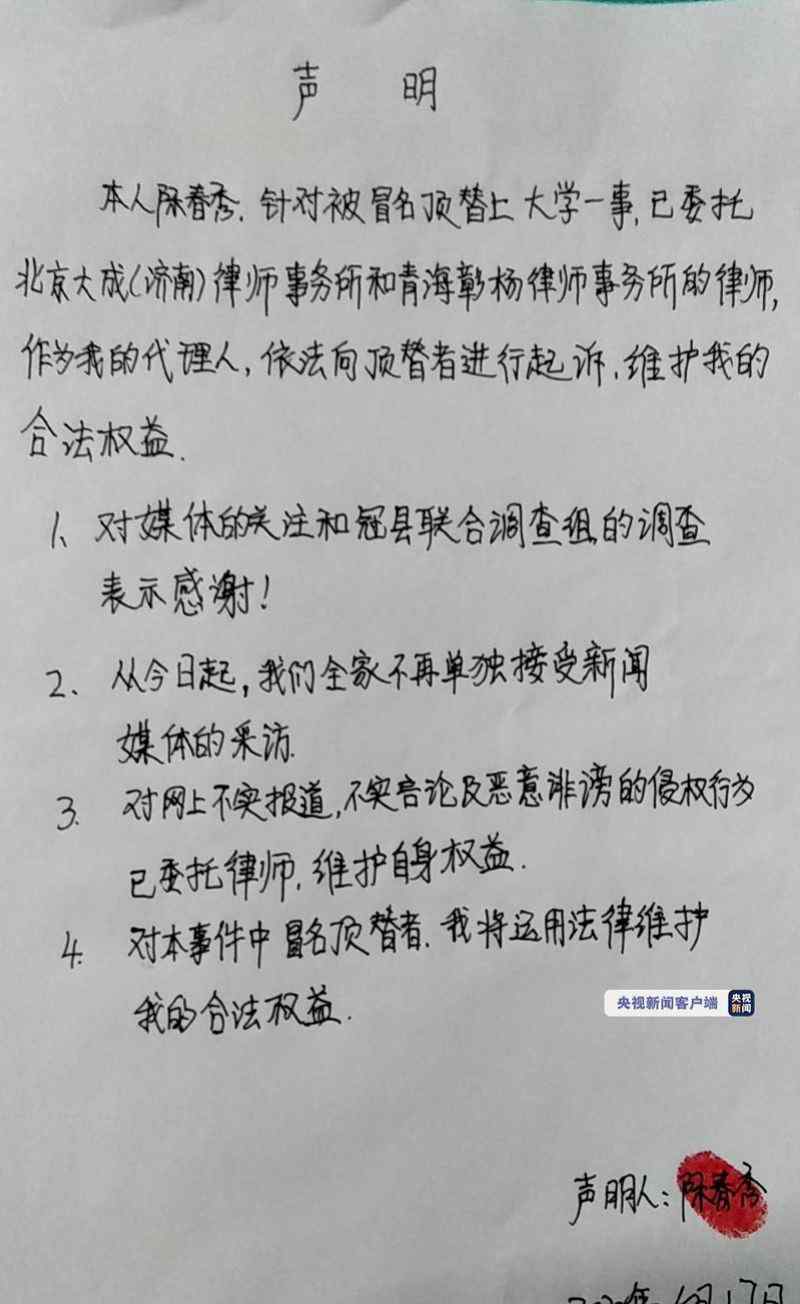 声 明
本人陈春秀，针对被冒名顶替上大学一事，已委托
北京大成(济南)律师事务所和青海彰杨律师事务所的律师，
作为我的代理人，依法向顶替者进行起诉，维护我的
合法权益.
1、对媒体的关注和冠县联合调查组的调查
表示感谢！
2、从今日起，我们全家不再单独接受新闻
媒体的采访.
3. 对网上不实报道，不实言论及恶意诽谤的侵权行为
已委托律师，维护自身权益.
4. 对本事件中冒名顶替者，我将运用法律维护
我的合法权益.
央视新闻客户端 央视新闻
声明人：陈春秀
2020年6月17日